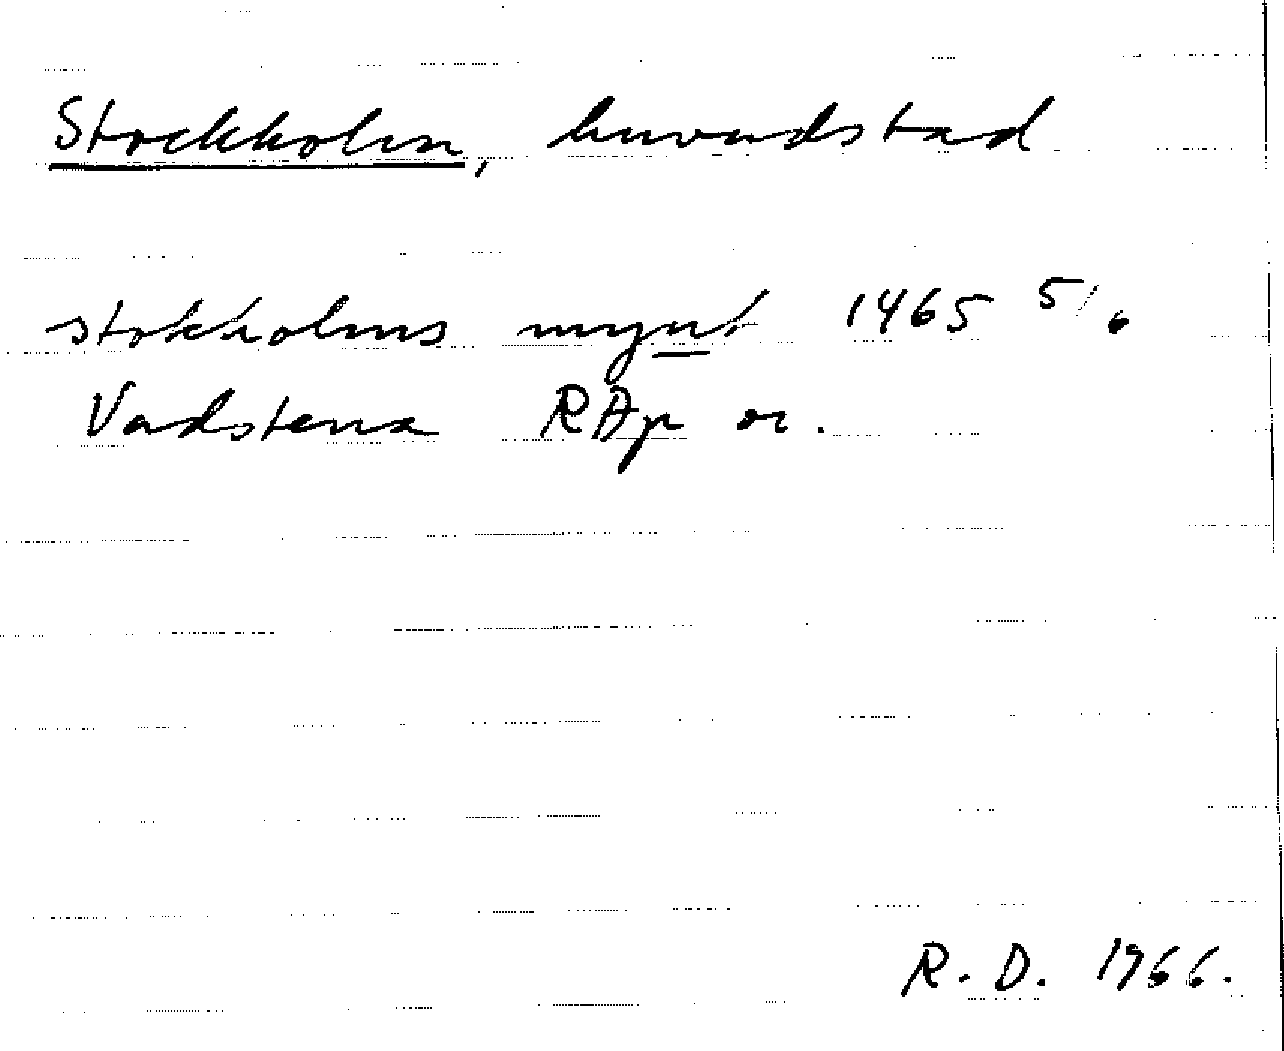 Stockholm, huvudstad
stokholms mynt 1465 5/6
Vadstena RAp or.
R. D. 1966.